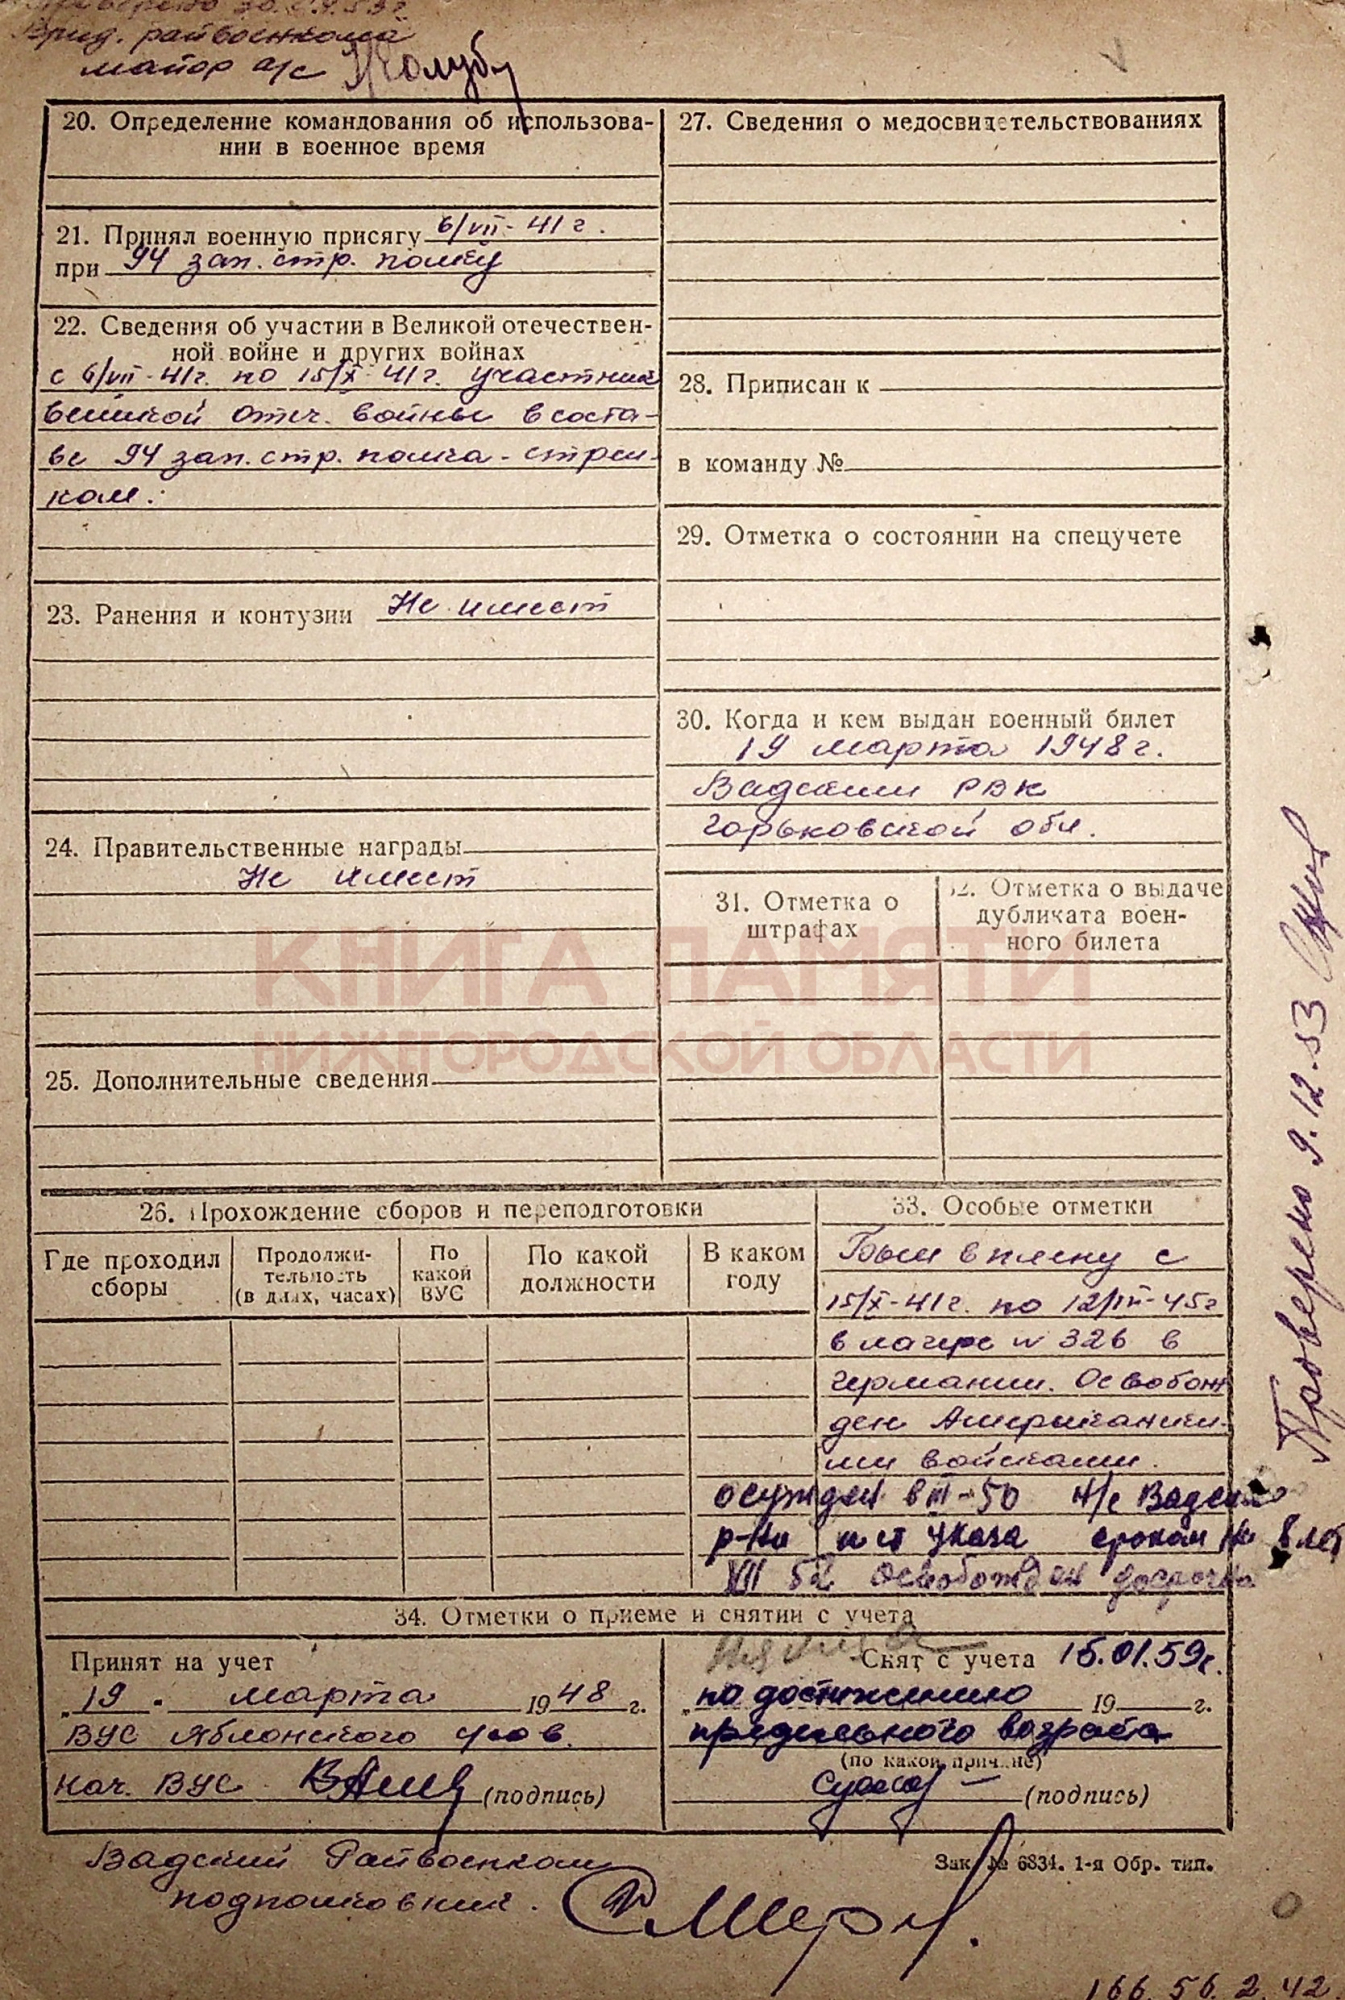 Врид. райвоенкома
майор а/с Голуб
20. Определение командования об использова-
нии в военное время
21. Принял военную присягу 6/VII-41 г.
при 94 зап. стр. полку
22. Сведения об участии в Великой отечествен-
ной войне и других войнах
с 6/VII-41г. по 15/X-41г. участник
великой отеч. войны в соста-
ве 94 зап. стр. полка - стрел-
ком.
23. Ранения и контузии Не имеет
24. Правительственные награды
Не имеет
25. Дополнительные сведения
27. Сведения о медосвидетельствованиях
28. Приписан к
в команду №
29. Отметка о состоянии на спецучете
30. Когда и кем выдан военный билет
19 марта 1948 г.
Вадским РВК
Горьковской обл.
31. Отметка о
штрафах
32. Отметка о выдаче
дубликата воен-
ного билета
КНИГА ПАМЯТИ
НИЖЕГОРОДСКОЙ ОБЛАСТИ
26. Прохождение сборов и переподготовки
Где проходил
сборы
Продолжи-
тельность
(в днях, часах)
По
какой
ВУС
По какой
должности
В каком
году
33. Особые отметки
Был в плену с
15/X-41г. по 12/III-45г
в лагере № 326 в
Германии. Освобож-
ден Американски-
ми войсками.
осужден в III-50 Н/с Вадского
р-на по ст Указа сроком на 8 лет
XII 52 освобожден досрочно
34. Отметки о приеме и снятии с учета
Принят на учет
„19" марта 1948 г.
ВУС Яблонского
нач. ВУС (подпись)
Снят с учета 15.01.59г.
по достижению 19 г.
предельного возраста
(по какой причине)
(подпись)
Вадский Райвоенком
подполковник.
Зак. № 6834. 1-я Обр. тип.
Проверено 9.12.53
166.56.2.42.